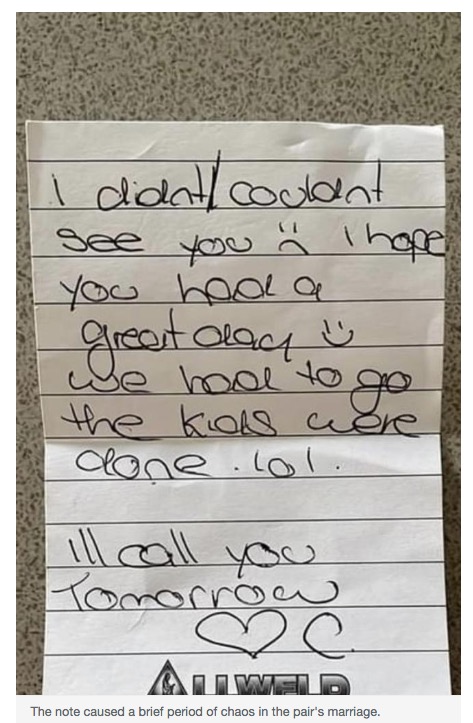 I didnt/couldnt
see you :( I hope
you had a
great day :)
we had to go
the kids were
done. lol.
Ill call you
Tomorrow
♡ C.
ALLWELD
The note caused a brief period of chaos in the pair's marriage.